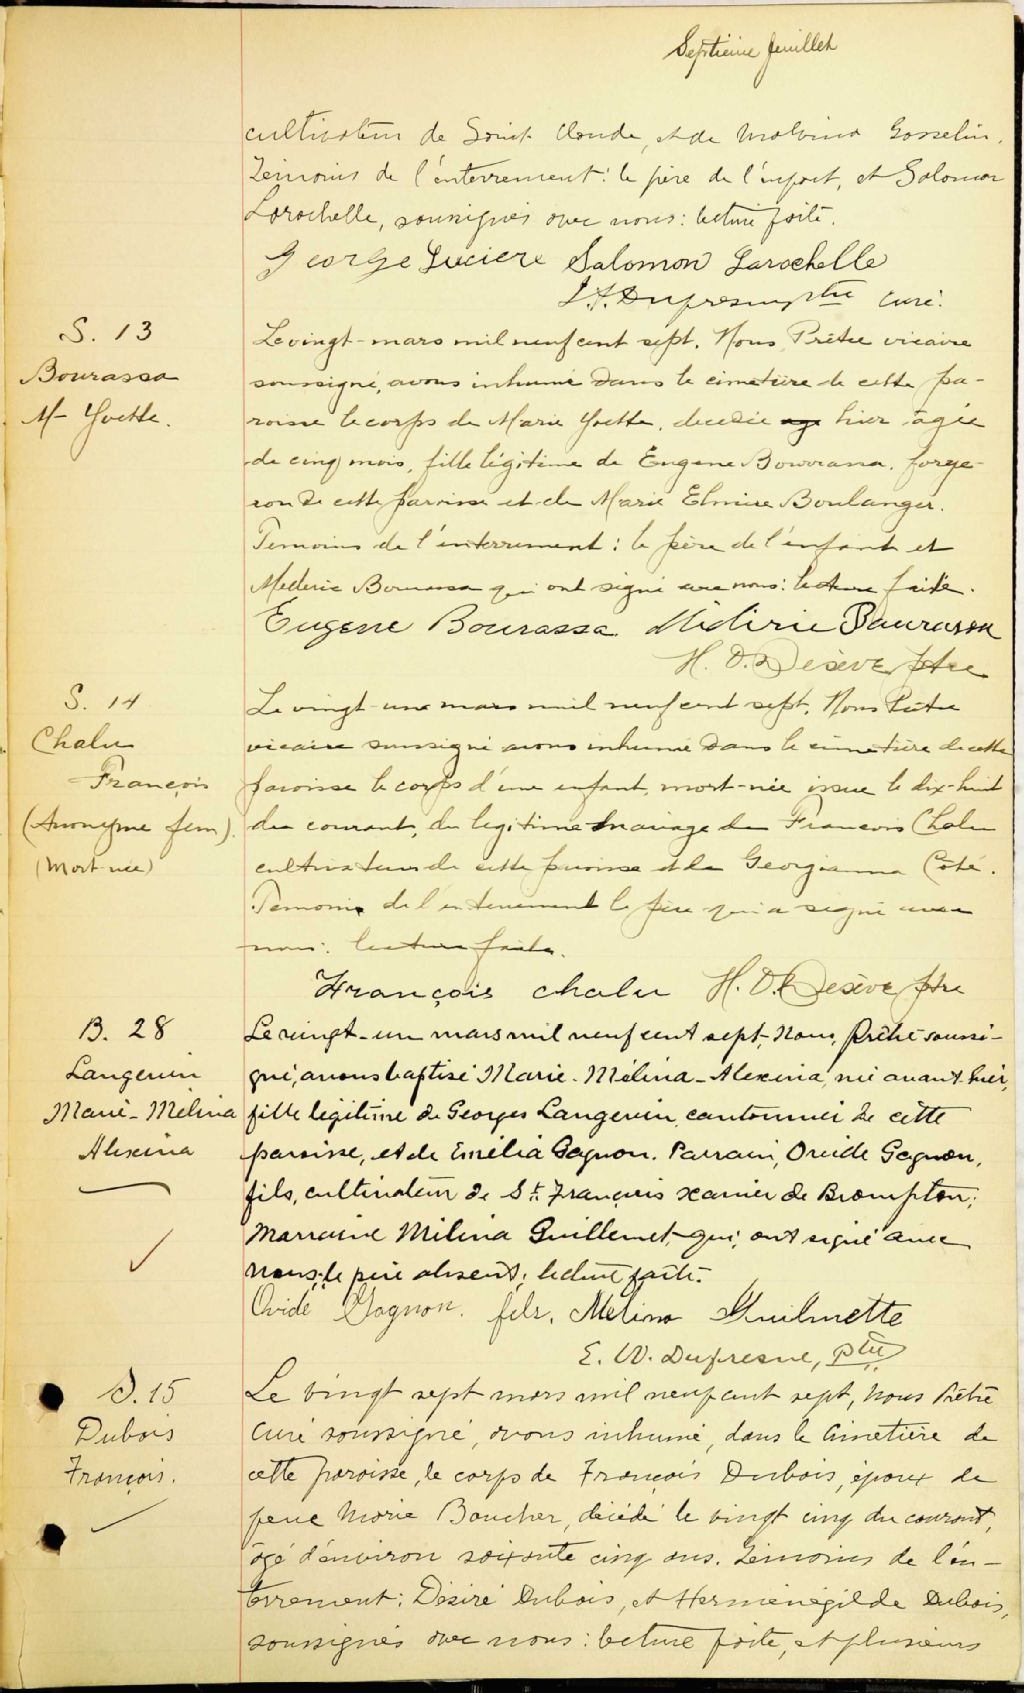 Septième feuillet
cultivateur de Saint Claude, et de Malvina Gosselin.
Témoins de l'enterrement: le père de l'enfant, et Salomon
Larochelle, soussignés avec nous: lecture faite.
George Luciere Salomon Larochelle
curé.
S. 13
Bourassa
M- Yvette.
Le vingt-mars mil neuf cent sept. Nous Prêtre vicaire
soussigné, avons inhumé dans le cimetière de cette pa-
roisse le corps de Marie Yvette, decedée hier âgée
de cinq mois, fille légitime de Eugene Bourassa, forge-
ron de cette paroisse et de Marie Elmire Boulanger.
Temoins de l'enterrement: le père de l'enfant et
Mederic Bourassa qui ont signé avec nous: lecture faite.
Eugene Bourassa Médéric Bourassa
H. O. Desève ptre
S. 14
Chalu
François
(Anonyme fem).
(Mort-née)
Le vingt-un mars mil neuf cent sept, Nous Prêtre
vicaire soussigné avons inhumé dans le cimetière de cette
paroisse le corps d'une enfant, mort-née issue le dix-huit
du courant, du legitime mariage de Francois Chalu
cultivateur de cette paroisse et de Georgianna Côté.
Temoins de l'enterrement le père qui a signé avec
nous: lecture faite.
François Chalu H. O. Desève ptre
B. 28
Langevin
Marie-Mélina
Alexina
Le vingt-un mars mil neuf cent sept, Nous, prêtre soussi-
gné, avons baptisé Marie-Mélina-Alexina, née avant-hier,
fille légitime de Georges Langevin, cantonnier de cette
paroisse, et de Emélia Gagnon. Parrain, Ovide Gagnon,
fils, cultivateur de St. François Xavier de Brompton;
Marraine Mélina Guillemet, qui ont signé avec
nous; le père absent; lecture faite.
Ovide Gagnon. fils. Melina Guilmette
E. W. Dufresne, ptre
S. 15
Dubois
François.
Le vingt sept mars mil neuf cent sept, nous Prêtre
Curé soussigné, avons inhumé, dans le Cimetière de
cette paroisse, le corps de François Dubois, époux de
feue Marie Boucher, décédé le vingt cinq du courant,
âgé d'environ soixante cinq ans. Témoins de l'en-
terrement: Désiré Dubois, et Herménégilde Dubois,
soussignés avec nous: lecture faite, et plusieurs